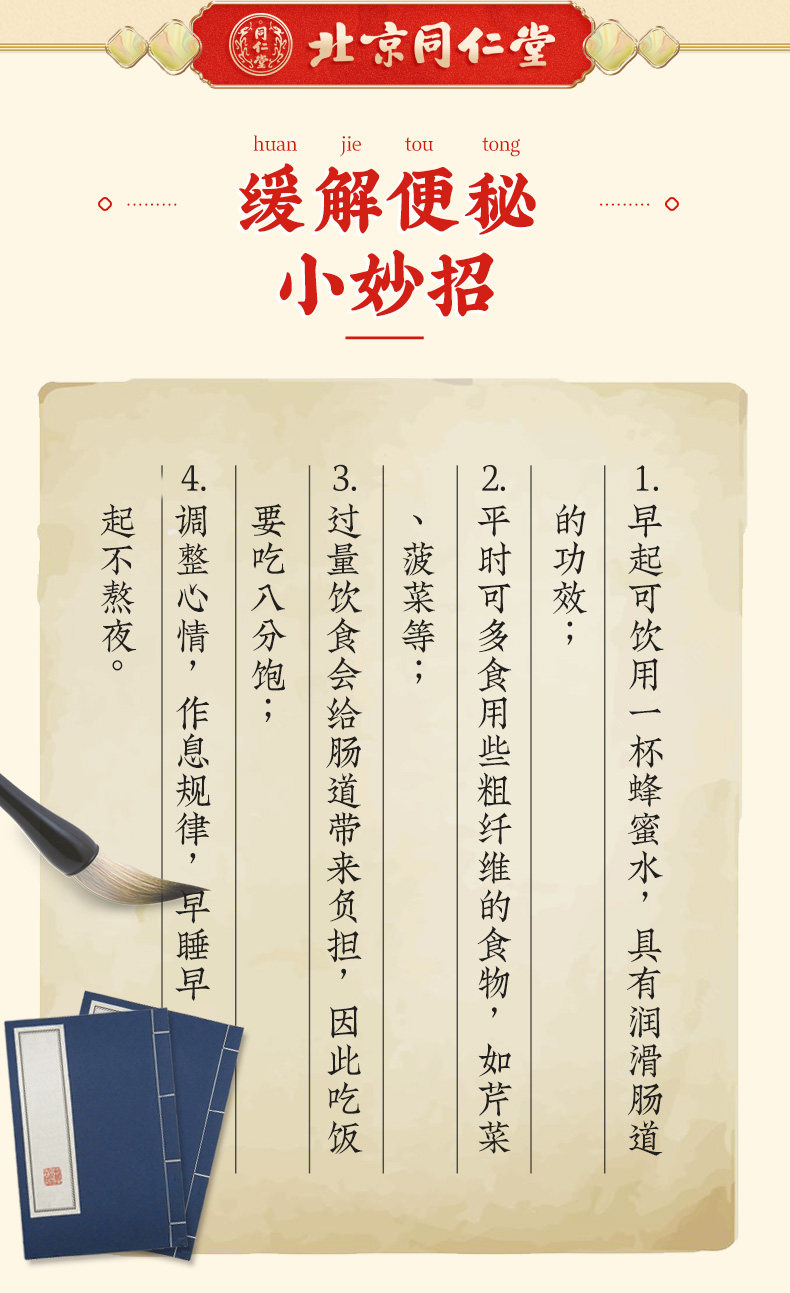 同仁堂
北京同仁堂
huan jie tou tong
缓解便秘
小妙招
1.早起可饮用一杯蜂蜜水，具有润滑肠道
的功效；
2.平时可多食用些粗纤维的食物，如芹菜
、菠菜等；
3.过量饮食会给肠道带来负担，因此吃饭
要吃八分饱；
4.调整心情，作息规律，早睡早
起不熬夜。